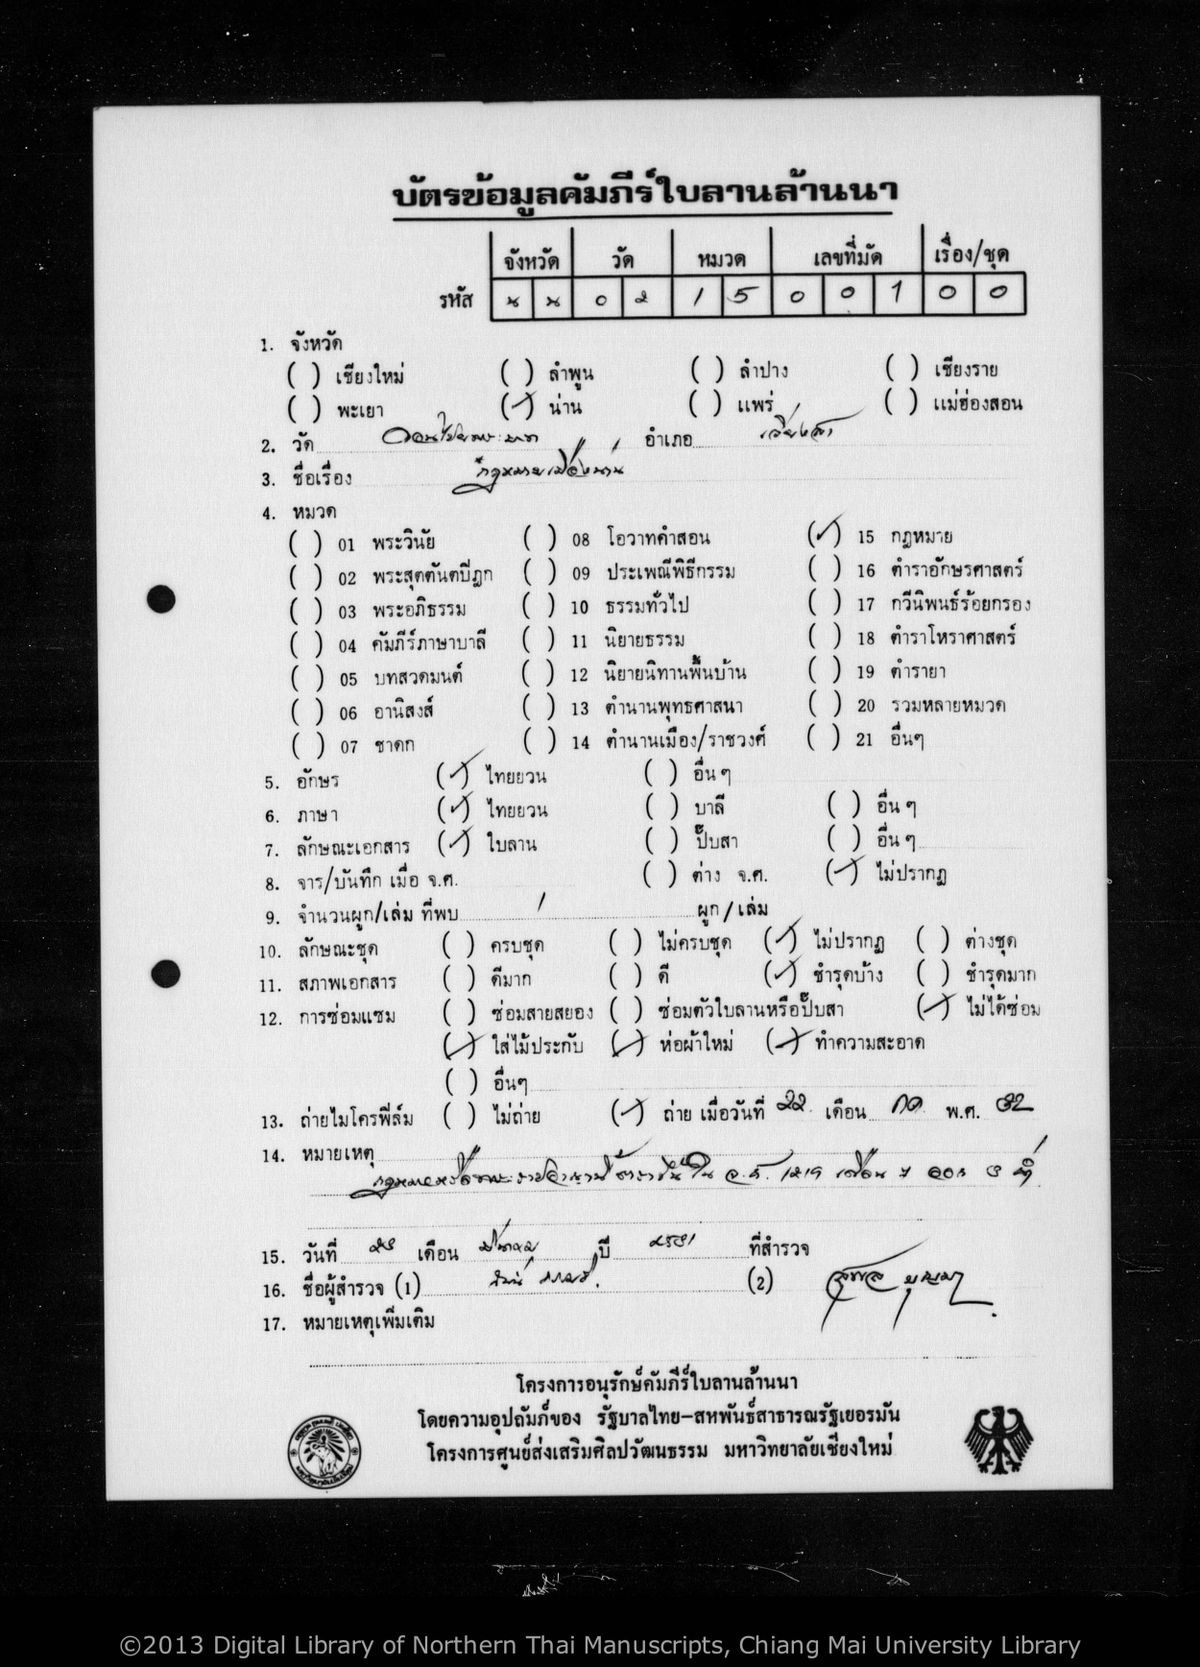 บัตรข้อมูลคัมภีร์ใบลานล้านนา
จังหวัด วัด หมวด เลขที่มัด เรื่อง/ชุด
รหัส น น 0 2 1 5 0 0 1 0 0
1. จังหวัด
( ) เชียงใหม่ ( ) ลำพูน ( ) ลำปาง ( ) เชียงราย
( ) พะเยา (✓) น่าน ( ) แพร่ ( ) แม่ฮ่องสอน
2. วัด ดอนไชยพระบาท อำเภอ เวียงสา
3. ชื่อเรื่อง กฎหมายเมืองน่าน
4. หมวด
( ) 01 พระวินัย ( ) 08 โอวาทคำสอน (✓) 15 กฎหมาย
( ) 02 พระสุตตันตปิฎก ( ) 09 ประเพณีพิธีกรรม ( ) 16 ตำราอักษรศาสตร์
( ) 03 พระอภิธรรม ( ) 10 ธรรมทั่วไป ( ) 17 กวีนิพนธ์ร้อยกรอง
( ) 04 คัมภีร์ภาษาบาลี ( ) 11 นิยายธรรม ( ) 18 ตำราโหราศาสตร์
( ) 05 บทสวดมนต์ ( ) 12 นิยายนิทานพื้นบ้าน ( ) 19 ตำรายา
( ) 06 อานิสงส์ ( ) 13 ตำนานพุทธศาสนา ( ) 20 รวมหลายหมวด
( ) 07 ชาดก ( ) 14 ตำนานเมือง/ราชวงศ์ ( ) 21 อื่นๆ
5. อักษร (✓) ไทยยวน ( ) อื่น ๆ
6. ภาษา (✓) ไทยยวน ( ) บาลี ( ) อื่น ๆ
7. ลักษณะเอกสาร (✓) ใบลาน ( ) ปั๊บสา ( ) อื่น ๆ
8. จาร/บันทึก เมื่อ จ.ศ. ( ) ต่าง จ.ศ. (✓) ไม่ปรากฏ
9. จำนวนผูก/เล่ม ที่พบ 1 ผูก/เล่ม
10. ลักษณะชุด ( ) ครบชุด ( ) ไม่ครบชุด (✓) ไม่ปรากฏ ( ) ต่างชุด
11. สภาพเอกสาร ( ) ดีมาก ( ) ดี (✓) ชำรุดบ้าง ( ) ชำรุดมาก
12. การซ่อมแซม ( ) ซ่อมสายสยอง ( ) ซ่อมตัวใบลานหรือปั๊บสา (✓) ไม่ได้ซ่อม
(✓) ใส่ไม้ประกับ (✓) ห่อผ้าใหม่ (✓) ทำความสะอาด
( ) อื่นๆ
13. ถ่ายไมโครฟิล์ม ( ) ไม่ถ่าย (✓) ถ่าย เมื่อวันที่ 22 เดือน กค พ.ศ. 32
14. หมายเหตุ
ใน จ.ศ. 1219 เดือน 7 ออก 3 ค่ำ
15. วันที่ ๒๓ เดือน มีนาคม ปี ๒๕๓1 ที่สำรวจ
16. ชื่อผู้สำรวจ (1) (2)
17. หมายเหตุเพิ่มเติม
โครงการอนุรักษ์คัมภีร์ใบลานล้านนา
โดยความอุปถัมภ์ของ รัฐบาลไทย-สหพันธ์สาธารณรัฐเยอรมัน
โครงการศูนย์ส่งเสริมศิลปวัฒนธรรม มหาวิทยาลัยเชียงใหม่
©2013 Digital Library of Northern Thai Manuscripts, Chiang Mai University Library